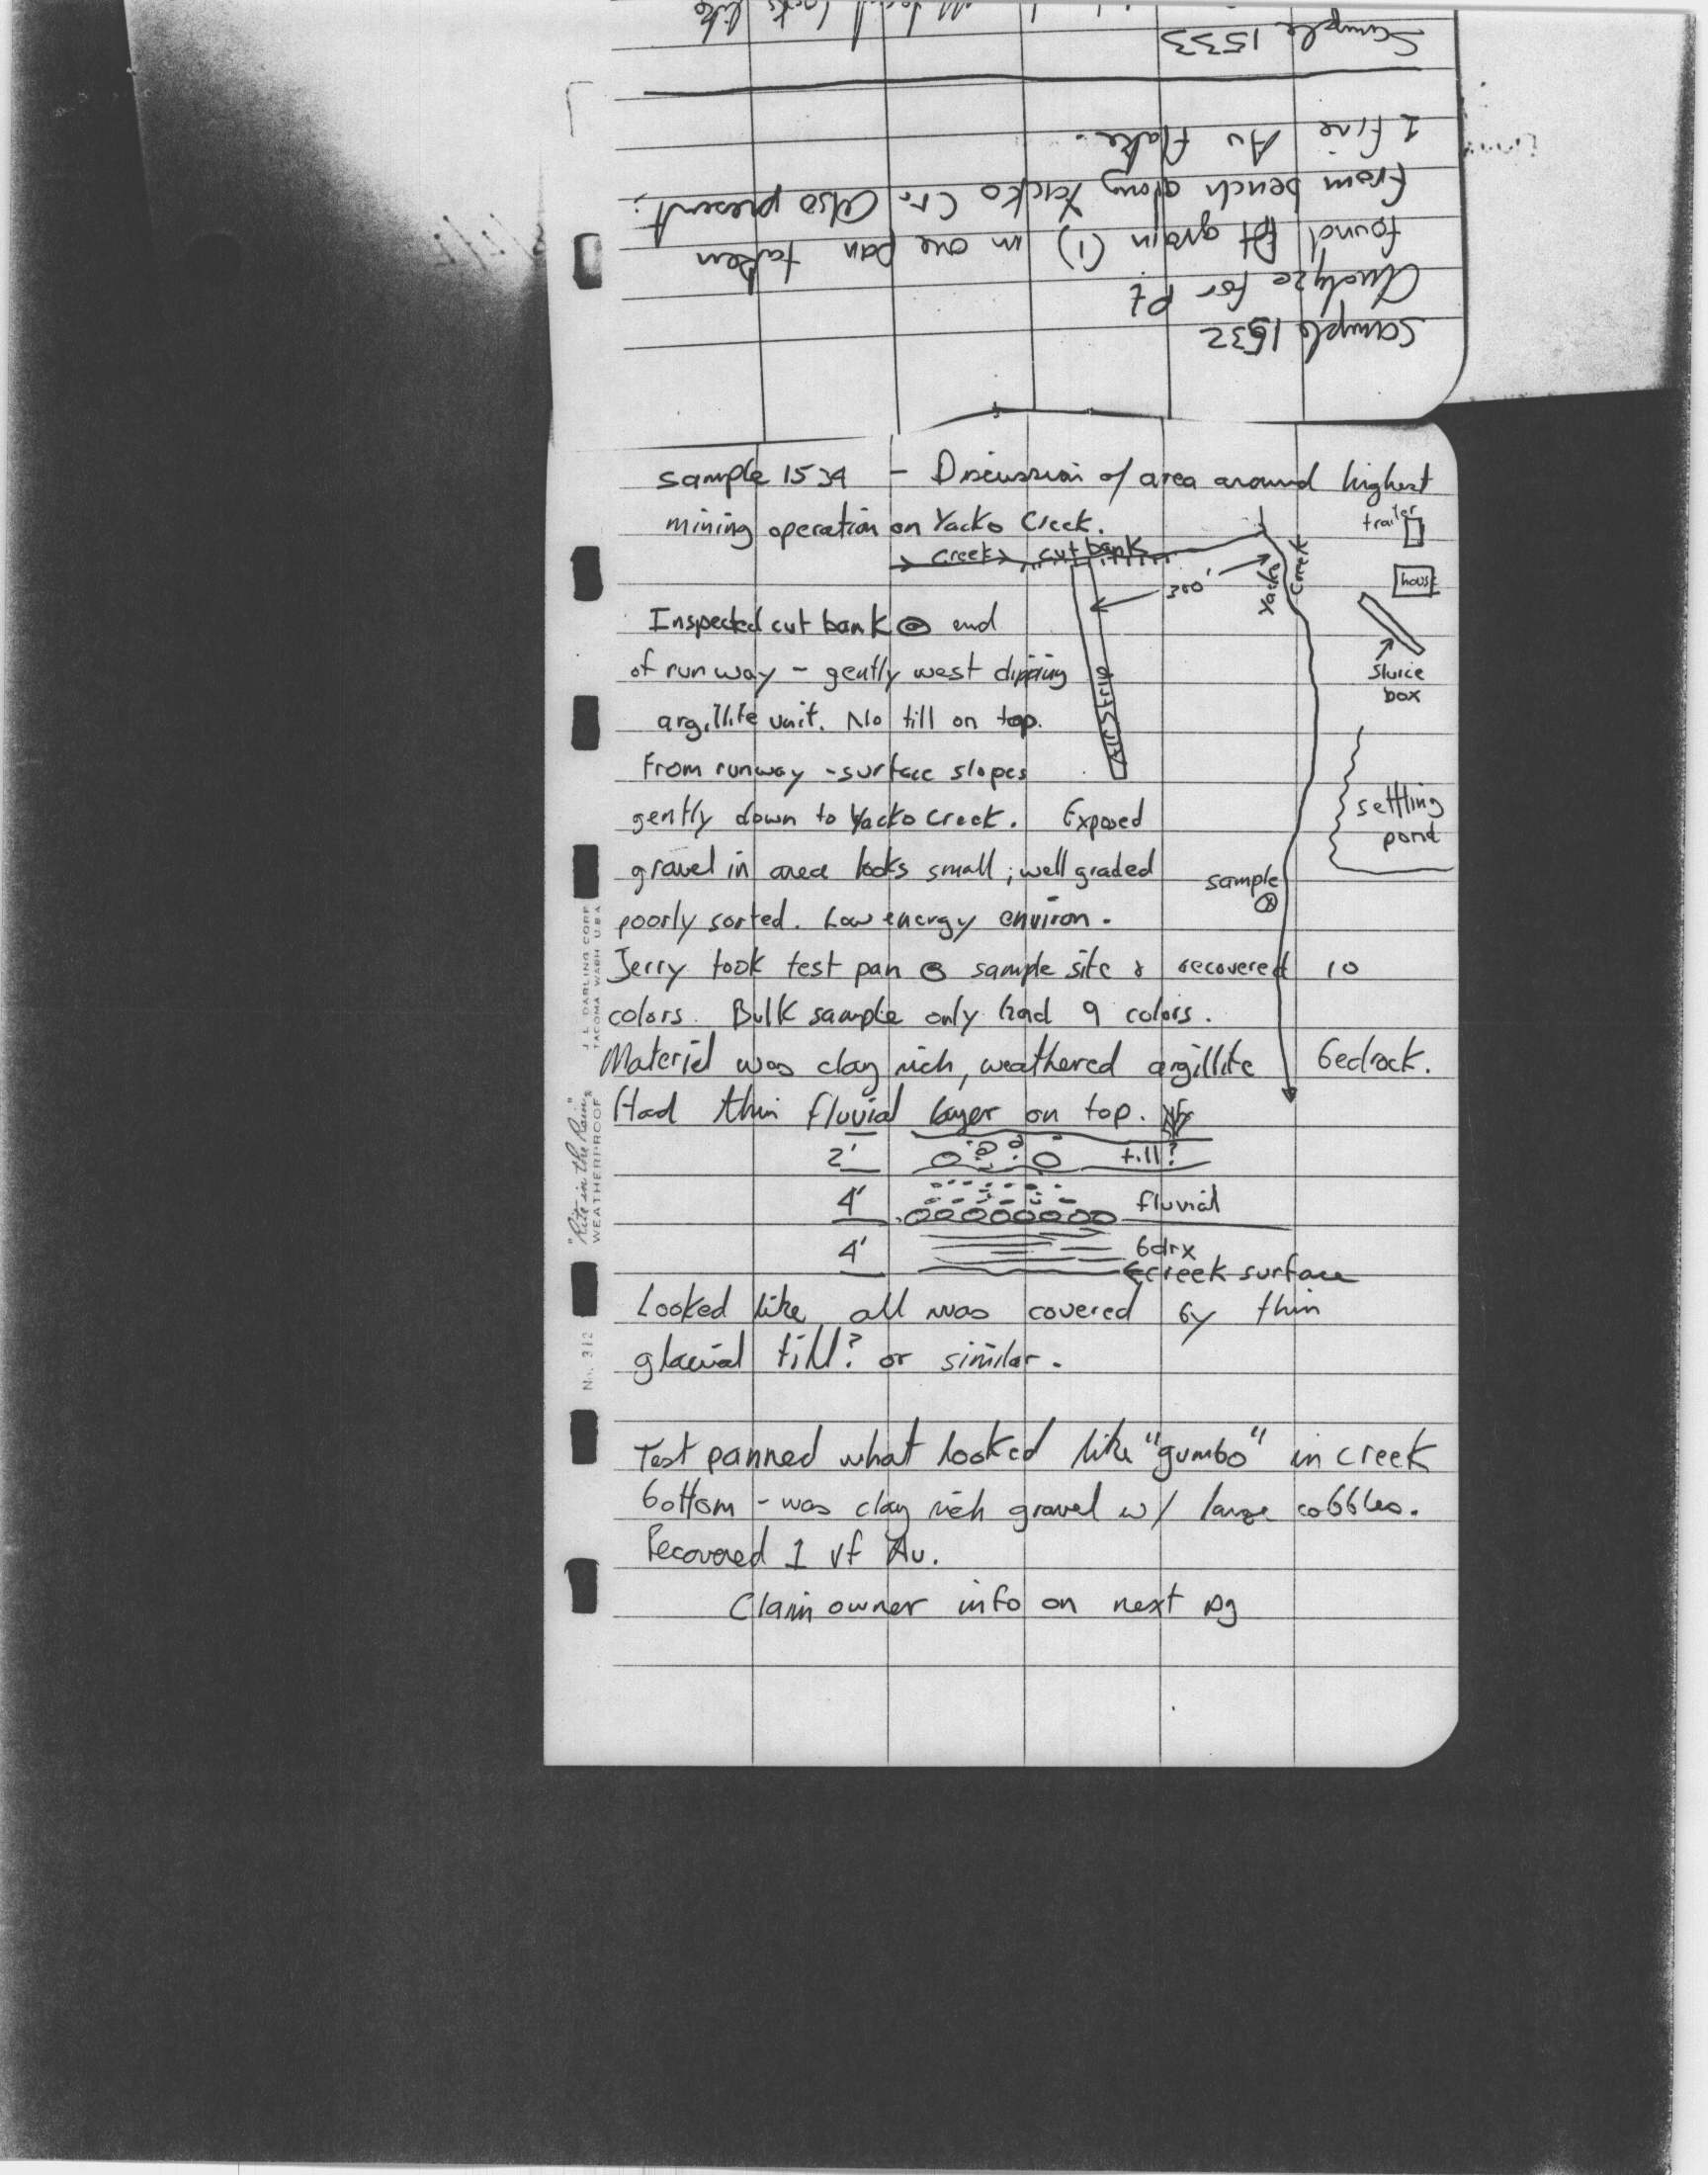 Sample 1533
Sample 1532
Analyze for Pt
found Pt grain (1) in one pan taken
from bench along Yacko Cr. Also present:
1 fine Au flake.
Sample 1534 - Discussion of area around highest
mining operation on Yacko Creek.
trailer
creek cut bank
300'
Yacko Creek
house
Inspected cut bank @ end
of runway - gently west dipping
sluice
box
argillite unit. No till on top.
Air Strip
From runway - surface slopes
gently down to Yacko Creek. Exposed
settling
pond
gravel in area looks small; well graded
sample
poorly sorted. Low energy environ.
Jerry took test pan @ sample site & recovered 10
colors. Bulk sample only had 9 colors.
Material was clay rich, weathered argillite bedrock.
Had thin fluvial layer on top.
2' till?
4' fluvial
4' bdrx
creek surface
Looked like all was covered by thin
glacial till? or similar.
Test panned what looked like "gumbo" in creek
bottom - was clay rich gravel w/ large cobbles.
Recovered 1 vf Au.
Claim owner info on next pg
J. L. DARLING CORP
TACOMA WASH U.S.A.
"Rite in the Rain"
WEATHERPROOF
No. 312